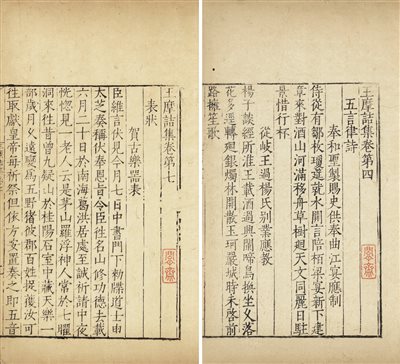 王摩詰集卷第四
五言律詩
奉和聖製賜史供奉曲江宴應制
侍從有鄒枚瓊筵就水開言陪柏梁宴新下建
章來對酒山河滿移舟草樹迴天文同麗日駐
景惜行杯
從岐王過楊氏別業應教
楊子談經所淮王載酒過興闌啼鳥換坐久落
花多逕轉廻銀燭林開散玉珂嚴城時未啓前
路擁笙歌
王摩詰集卷第七
表狀
賀古樂器表
臣維言伏見今月七日中書門下勑牒道士申
太芝奏稱伏奉恩旨令臣往名山修功德去載
六月二十日於南海葛洪居處至誠祈請中夜
恍惚見一老人云是茅山羅浮神人常於七曜
洞來往昔曾九疑山於桂陽石室中藏天樂一
部歲月久遠變為五野猪彼郡百姓捉獲汝可
往取獻皇帝每祈祭但依方安置奏之即五音